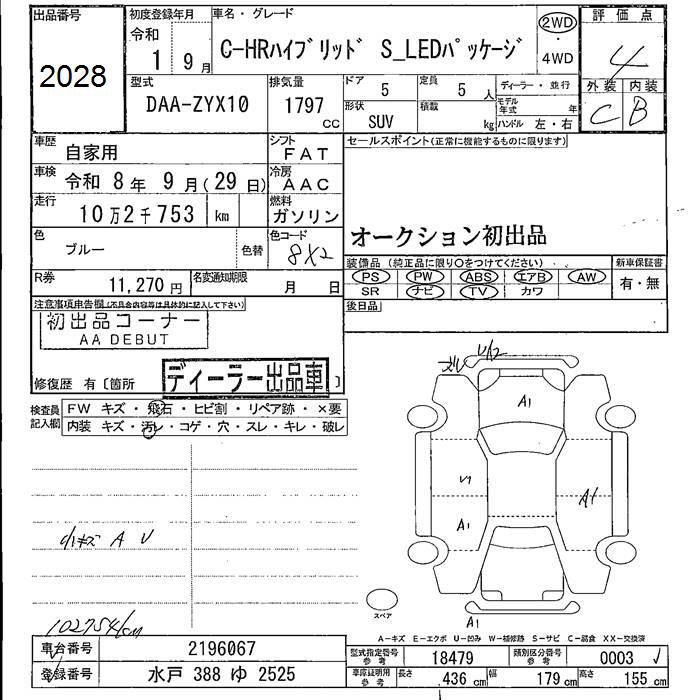 出品番号
2028
初度登録年月
令和
1 9月
車名・グレード
C-HRハイブリッド S_LEDパッケージ
2WD
4WD
評価点
4
外装 内装
C B
型式
DAA-ZYX10
排気量
1797
cc
ドア
5
定員
5 人
形状
SUV
積載
kg
ディーラー・並行
モデル年式 年
ハンドル 左・右
車歴
自家用
シフト
FAT
車検
令和 8年 9月(29日)
冷房
AAC
走行
10万2千753 km
燃料
ガソリン
色
ブルー
色替
色コード
8X2
R券
11,270円
名変通知期限
月 日
セールスポイント(正常に機能するものに限ります)
オークション初出品
装備品 (純正品に限り○をつけてください)
PS PW ABS エアB AW
SR ナビ TV カワ
新車保証書
有・無
後日品
注意事項申告欄(不具合内容等は具体的に記入して下さい)
初出品コーナー
AA DEBUT
修復歴 有〔箇所 〕
ディーラー出品車
検査員記入欄
FW キズ・飛石・ヒビ割・リペア跡・×要
内装 キズ・汚レ・コゲ・穴・スレ・キレ・破レ
小キズ A U
102754km
U12
A1
A1
A1
A1
スペア
A-キズ E-エクボ U-凹み W-補修跡 S-サビ C-腐食 XX-交換済
車台番号
2196067
登録番号
水戸 388 ゆ 2525
型式指定番号
参考
18479
類別区分番号
参考
0003
車庫証明用
参考
長さ 436 cm 幅 179 cm 高さ 155 cm